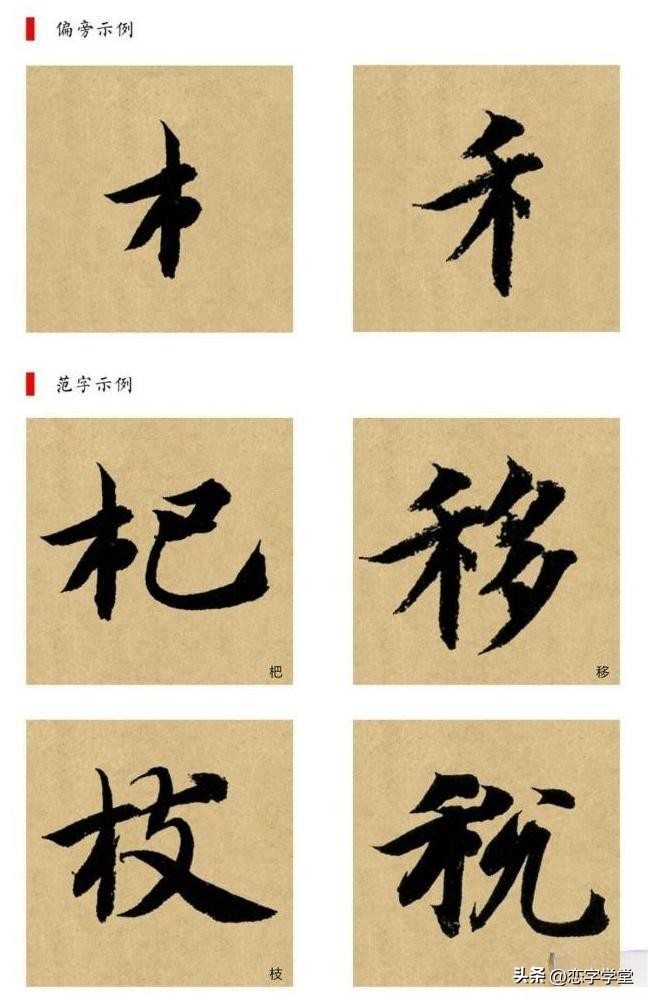 偏旁示例
木 禾
范字示例
杞 移
杷 移
枝
枝
头条 @恋字学堂